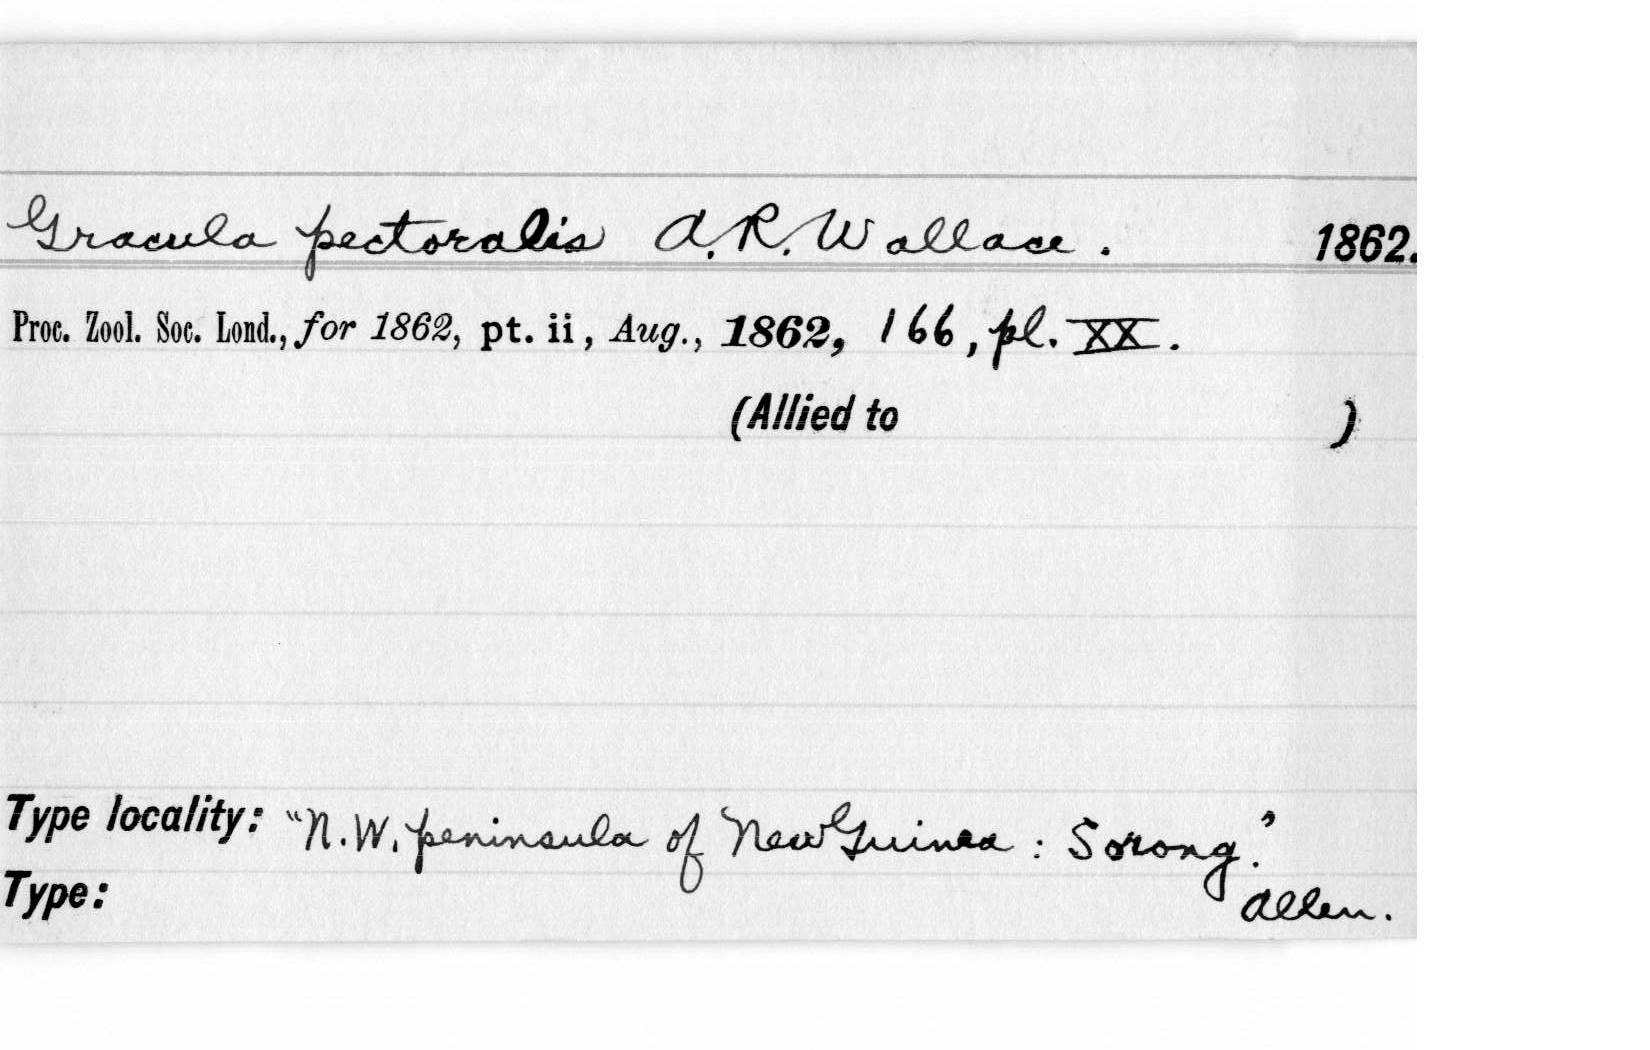 Gracula pectoralis A.R. Wallace. 1862.
Proc. Zool. Soc. Lond., for 1862, pt. ii, Aug., 1862, 166, pl. XX.
(Allied to )
Type locality: "N.W. peninsula of New Guinea : Sorong."
Allen.
Type: